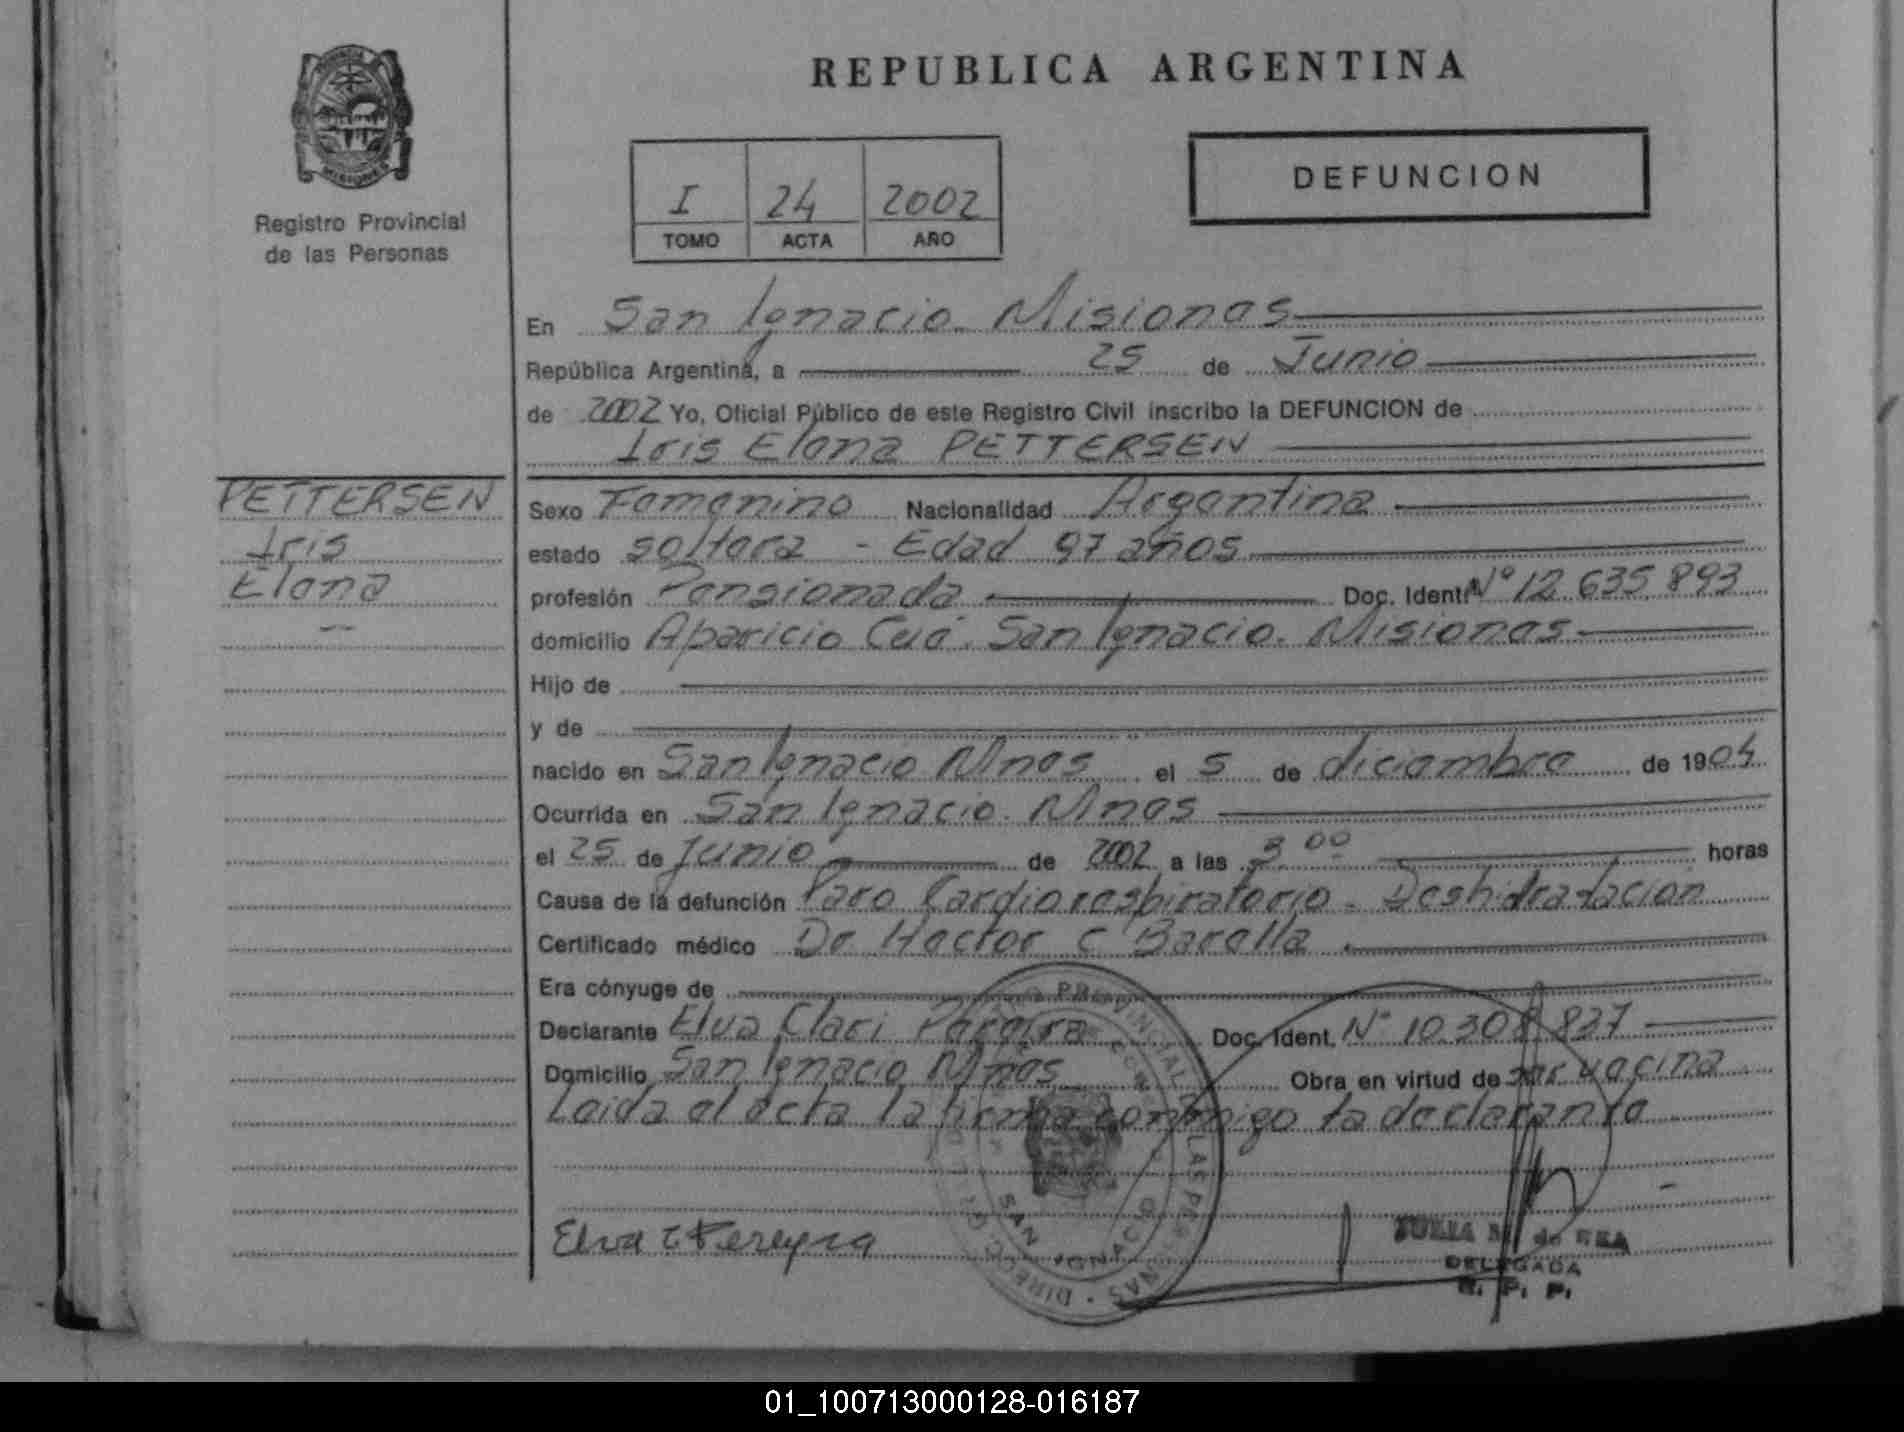 REPUBLICA ARGENTINA
MISIONES
Registro Provincial
de las Personas
I 24 2002
TOMO ACTA AÑO
DEFUNCION
En San Ignacio Misiones
República Argentina, a 25 de Junio
de 2002 Yo, Oficial Público de este Registro Civil inscribo la DEFUNCION de
Iris Elena PETTERSEN
PETTERSEN
Iris
Elena
Sexo Femenino Nacionalidad Argentina
estado soltera - Edad 97 años
profesión Pensionada Doc. Ident. Nº 12.635.893
domicilio Aparicio Cué. San Ignacio. Misiones
Hijo de
y de
nacido en San Ignacio Mnes el 5 de diciembre de 1904
Ocurrida en San Ignacio. Mnes
el 25 de Junio de 2002 a las 3 00 horas
Causa de la defunción Paro Cardiorespiratorio - Deshidratación
Certificado médico Dr Hector C Barella
Era cónyuge de
Declarante Elva Clari Pereira Doc. Ident. Nº 10.308.837
Domicilio San Ignacio Mnes Obra en virtud de ser vecina
Leida el acta la firma conmigo la declarante
Elva C Pereyra
JULIA M. de REA
DELEGADA
R. P. P.
01_100713000128-016187